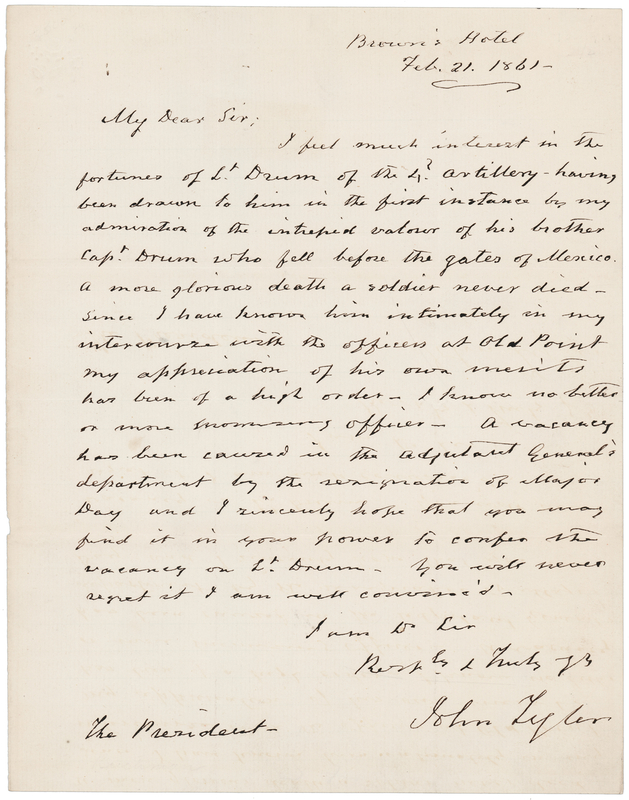 Brown's Hotel
Feb. 21. 1861-
My Dear Sir;
I feel much interest in the
fortunes of Lt Drum of the 4th Artillery - having
been drawn to him in the first instance by my
admiration of the intrepid valour of his brother
Capt Drum who fell before the gates of Mexico.
A more glorious death a soldier never died -
Since I have known him intimately in my
intercourse with the officers at Old Point
my appreciation of his own merits
has been of a high order - I know no better
or more promising officer - A vacancy
has been caused in the Adjutant General's
department by the resignation of Major
Day and I sincerely hope that you may
find it in your power to confer the
vacancy on Lt Drum - You will never
regret it I am well convinc'd -
I am Dr Sir
Resply & Truly Yrs
John Tyler
The President -